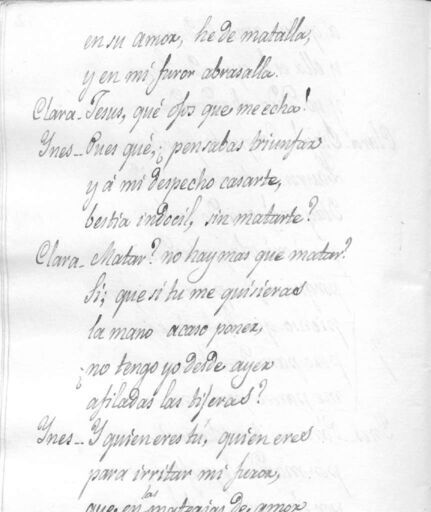 en su amor, he de matalla,
y en mi furor abrasalla.
Clara - Jesus, qué ojos que me echa!
Ynes - Pues qué, ¿ pensabas triunfar
y á mi despecho casarte,
bestia indocil, sin matarte?
Clara - Matar? no hay mas que matar?
Si; que si tu me quisieras
la mano acaso poner,
¿no tengo yo desde ayer
afiladas las tijeras?
Ynes - Y quien eres tú, quien eres
para irritar mi furor,
que en las materias de amor